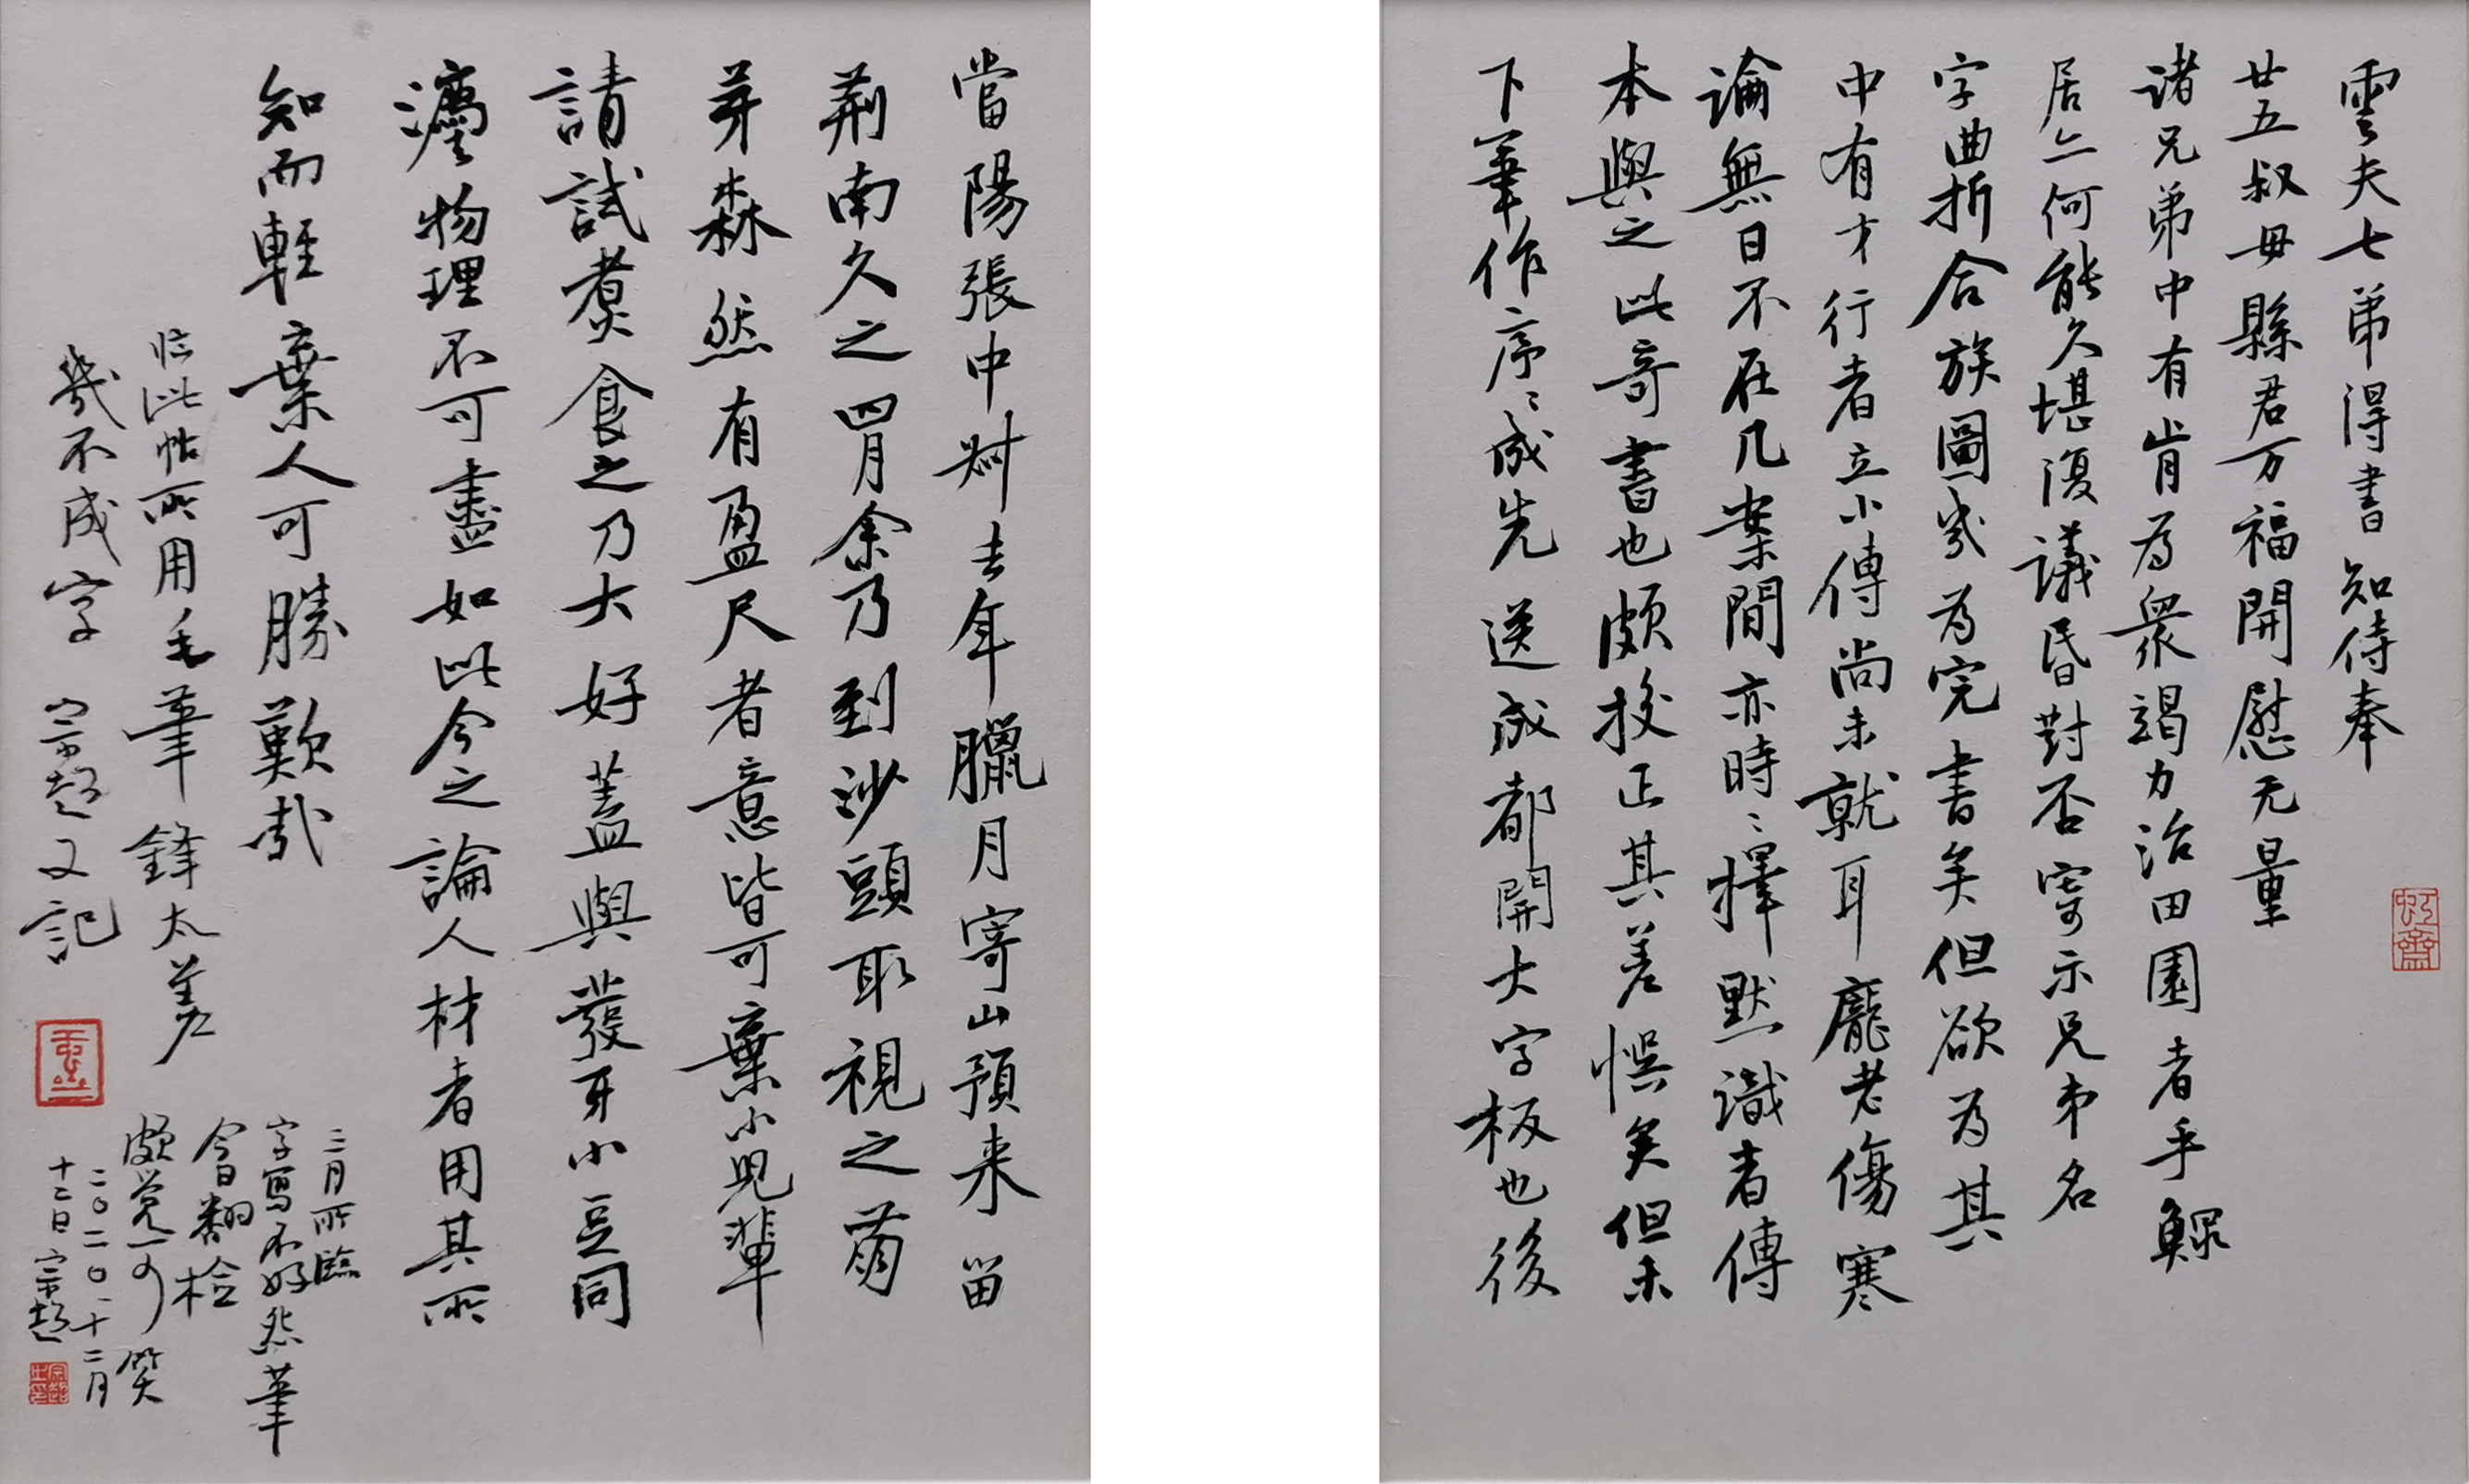 雲夫七弟得書知侍奉
廿五叔母縣君万福開慰无量
诸兄弟中有肯為衆竭力治田園者乎鰥
居亦何能久堪復議昏對否寄示兄弟名
字曲折合族圖幾為完書矣但欲為其
中有才行者立小傳尚未就耳龐老傷寒
論無日不在几案間亦時〻擇默識者傳
本與之此奇書也頗校正其差悮矣但未
下筆作序〻成先送成都開大字板也後
虹齋
當陽張中叔去年臘月寄山預来留
荆南久之四月余乃到沙頭取視之萌
芽森然有盈尺者意皆可棄小兒輩
請試煮食之乃大好蓋與發牙小豆同
灋物理不可盡如此今之論人材者用其所
知而輕棄人可勝歎哉
临此帖所用毛筆鋒太差
幾不成字 宗超又記
三月所臨
字寫不好然筆
今日翻檢
頗覺可笑
二〇二〇、十二月
十二日宗超